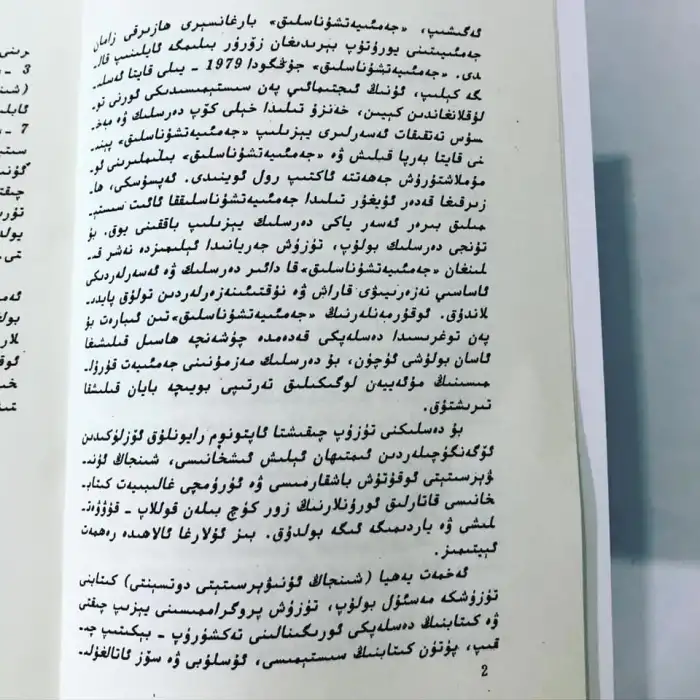 ئەگىشىپ، «جەمئىيەتشۇناسلىق» بارغانسېرى ھازىرقى زامان
جەمئىيىتىنى يورۇتۇپ بېرىدىغان زۆرۈر بىلىمگە ئايلىنىپ قال‍ـ
دى. «جەمئىيەتشۇناسلىق» جۇڭگودا 1979 - يىلى قايتا ئەسلى‍ـ
گە كېلىپ، ئۇنىڭ ئىجتىمائىي پەن سىستېمىسىدىكى ئورنى تو‍ـ
لۇقلانغاندىن كېيىن، خەنزۇ تىلىدا خېلى كۆپ دەرسلىك ۋە مەخ‍ـ
سۇس تەتقىقات ئەسەرلىرى يېزىلىپ «جەمئىيەتشۇناسلىق» پېنى‍ـ
نى قايتا بەرپا قىلىش ۋە «جەمئىيەتشۇناسلىق» بىلىملىرىنى ئو‍ـ
مۇملاشتۇرۇش جەھەتتە ئاكتىپ رول ئوينىدى. ئەپسۇسكى، ھا‍ـ
زىرقىغا قەدەر ئۇيغۇر تىلىدا جەمئىيەتشۇناسلىققا ئائىت سىستې‍ـ
مىلىق بىرەر ئەسەر ياكى دەرسلىك يېزىلىپ باققىنى يوق. بۇ
تۇنجى دەرسلىك بولۇپ، تۈزۈش جەريانىدا ئېلىمىزدە نەشر قى‍ـ
لىنغان «جەمئىيەتشۇناسلىق»قا دائىر دەرسلىك ۋە ئەسەرلەردىكى
ئاساسىي نەزەرىيىۋى قاراش ۋە نۇقتىئىنەزەرلەردىن تولۇق پايدى‍ـ
لاندۇق. ئوقۇرمەنلەرنىڭ «جەمئىيەتشۇناسلىق»تىن ئىبارەت بۇ
پەن توغرىسىدا دەسلەپكى قەدەمدە چۈشەنچە ھاسىل قىلىشىغا
ئاسان بولۇشى ئۈچۈن، بۇ دەرسلىك مەزمۇنىنى جەمئىيەت قۇرۇل‍ـ
مىسىنىڭ مۇئەييەن لوگىكىلىق تەرتىپى بويىچە بايان قىلىشقا
تىرىشتۇق.
بۇ دەسلىكنى تۈزۈپ چىقىشتا ئاپتونوم رايونلۇق ئۆزلۈكىدىن
ئۆگەنگۈچىلەردىن ئىمتىھان ئېلىش ئىشخانىسى، شىنجاڭ ئۇنى‍ـ
ۋېرسىتېتى ئوقۇتۇش باشقارمىسى ۋە ئۈرۈمچى غالىبىيەت كىتاب‍ـ
خانىسى قاتارلىق ئورۇنلارنىڭ زور كۈچ بىلەن قوللاپ - قۇۋۋەت‍ـ
لىشى ۋە ياردىمىگە ئىگە بولدۇق. بىز ئۇلارغا ئالاھىدە رەھمەت
ئېيتىمىز.
ئەخمەت يەھيا (شىنجاڭ ئۇنىۋېرسىتېتى دوتسېنتى) كىتابنى
تۈزۈشكە مەسئۇل بولۇپ، تۈزۈش پروگراممىسىنى يېزىپ چىقتى
ۋە كىتابنىڭ دەسلەپكى ئورىگىنالىنى تەكشۈرۈپ - بېكىتىپ چى‍ـ
قىپ، پۈتۈن كىتابنىڭ سىستېمىسى، ئۇسلۇبى ۋە سۆز ئاتالغۇلى‍ـ
2